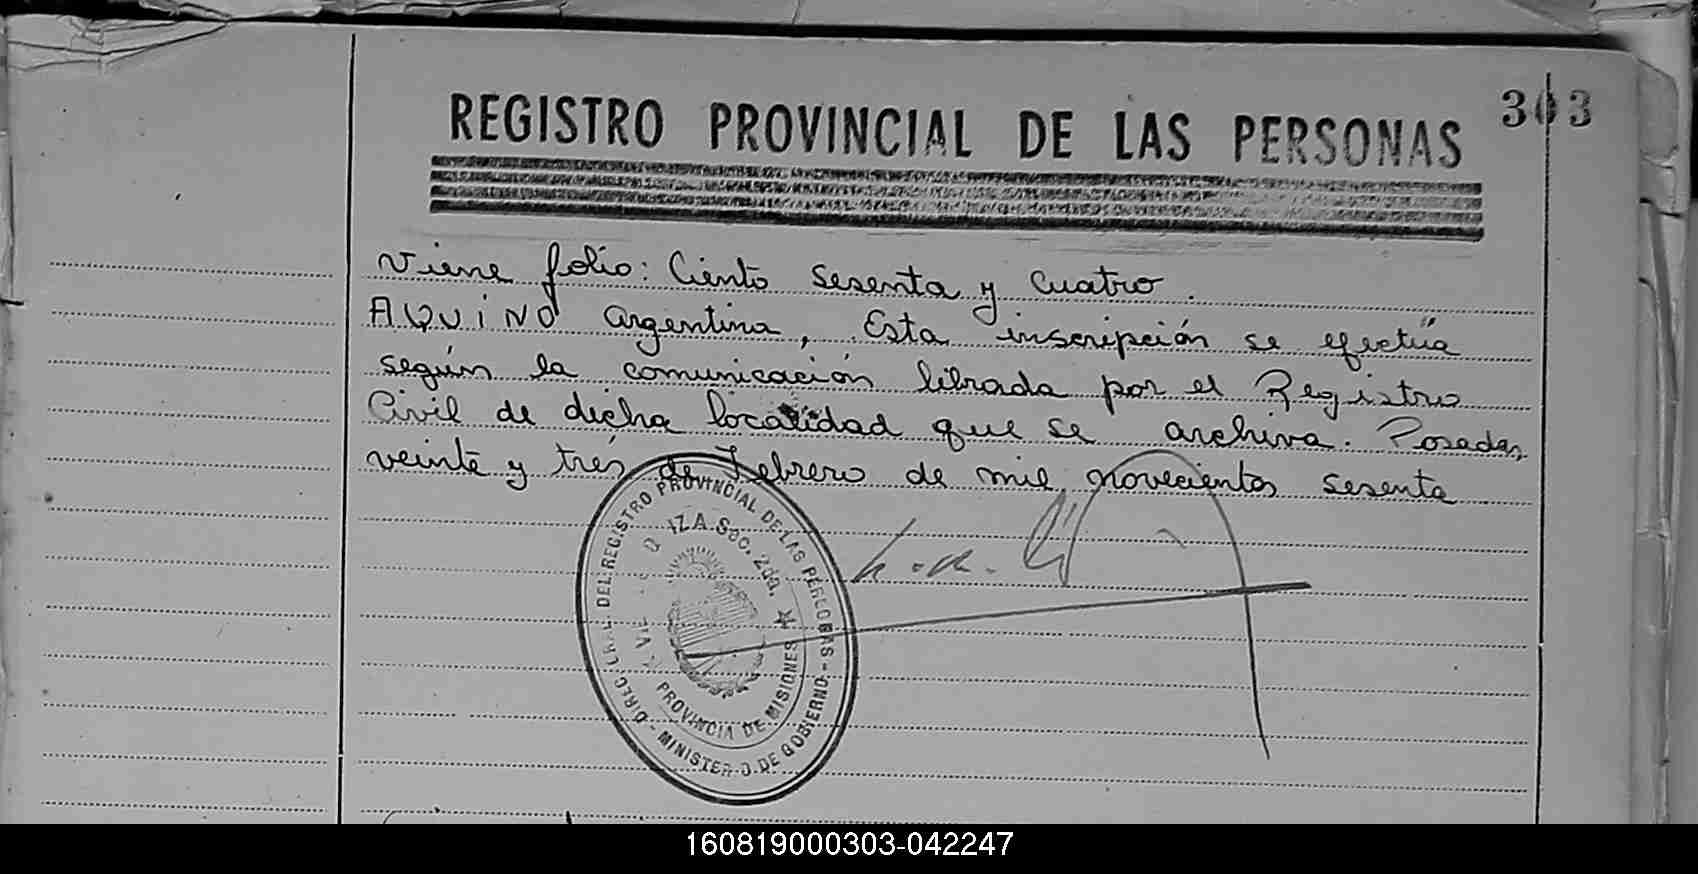 303
REGISTRO PROVINCIAL DE LAS PERSONAS
Viene folio: Ciento sesenta y cuatro.
AQUINO argentina, Esta inscripción se efectúa
según la comunicación librada por el Registro
Civil de dicha localidad que se archiva. Posadas,
veinte y trés de Febrero de mil novecientos sesenta
DEL REGISTRO PROVINCIAL DE LAS PERSONAS
MINISTERIO DE GOBIERNO
Sec. 2da.
PROVINCIA DE MISIONES
160819000303-042247